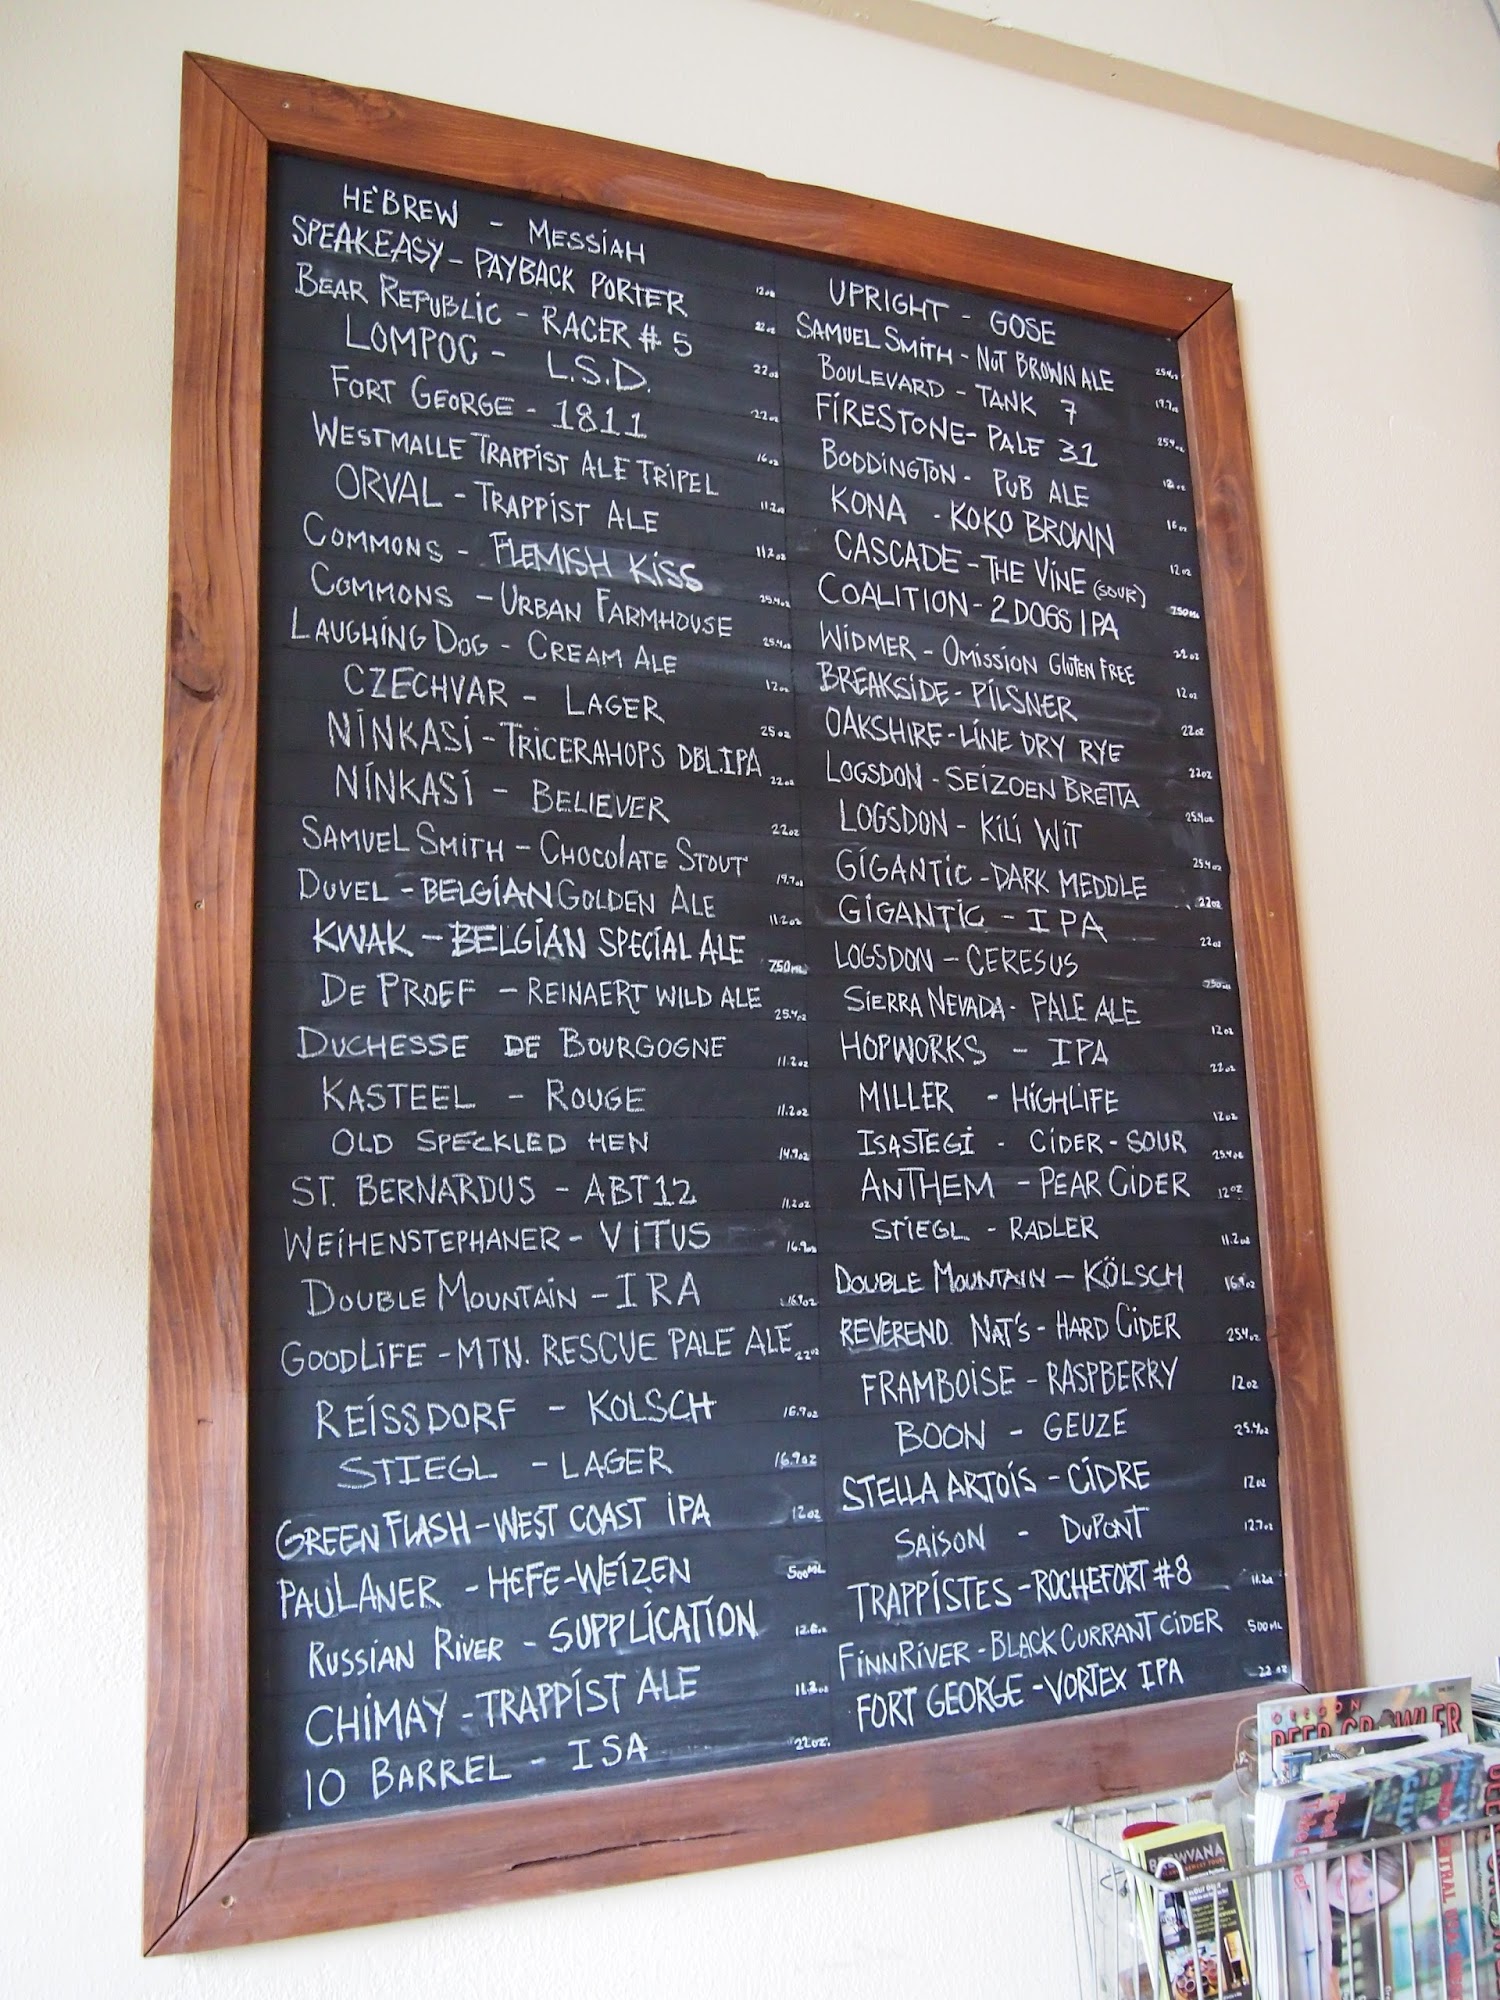 HE'BREW - MESSIAH 12oz
SPEAKEASY - PAYBACK PORTER 22oz
BEAR REPUBLIC - RACER # 5 22oz
LOMPOC - L.S.D. 22oz
FORT GEORGE - 1811 16oz
WESTMALLE TRAPPIST ALE TRIPEL 11.2oz
ORVAL - TRAPPIST ALE 11.2oz
COMMONS - FLEMISH KISS 25.4oz
COMMONS - URBAN FARMHOUSE 25.4oz
LAUGHING DOG - CREAM ALE 12oz
CZECHVAR - LAGER 25oz
NINKASI - TRICERAHOPS DBL.IPA 22oz
NINKASI - BELIEVER 22oz
SAMUEL SMITH - CHOCOLATE STOUT 19.7oz
DUVEL - BELGIAN GOLDEN ALE 11.2oz
KWAK - BELGIAN SPECIAL ALE 750ML
DE PROEF - REINAERT WILD ALE 25.4oz
DUCHESSE DE BOURGOGNE 11.2oz
KASTEEL - ROUGE 11.2oz
OLD SPECKLED HEN 14.9oz
ST. BERNARDUS - ABT 12 11.2oz
WEIHENSTEPHANER - VITUS 16.9oz
DOUBLE MOUNTAIN - IRA 16.9oz
GOODLIFE - MTN. RESCUE PALE ALE 22oz
REISSDORF - KOLSCH 16.9oz
STIEGL - LAGER 16.9oz
GREEN FLASH - WEST COAST IPA 12oz
PAULANER - HEFE-WEIZEN 500ML
RUSSIAN RIVER - SUPPLICATION 12.6oz
CHIMAY - TRAPPIST ALE 11.2oz
10 BARREL - ISA 22oz.
UPRIGHT - GOSE 25.4oz
SAMUEL SMITH - NUT BROWN ALE 19.7oz
BOULEVARD - TANK 7 25.4oz
FIRESTONE - PALE 31
BODDINGTON - PUB ALE 16oz
KONA - KOKO BROWN 12oz
CASCADE - THE VINE (SOUR) 750ML
COALITION - 2 DOGS IPA 22oz
WIDMER - OMISSION GLUTEN FREE 12oz
BREAKSIDE - PILSNER 22oz
OAKSHIRE - LINE DRY RYE 22oz
LOGSDON - SEIZOEN BRETTA 25.4oz
LOGSDON - KILI WIT 25.4oz
GIGANTIC - DARK MEDDLE 22oz
GIGANTIC - IPA 22oz
LOGSDON - CERESUS 750ML
SIERRA NEVADA - PALE ALE 12oz
HOPWORKS - IPA 22oz
MILLER - HIGHLIFE 12oz
ISASTEGI - CIDER - SOUR 25.4oz
ANTHEM - PEAR CIDER 12oz
STIEGL - RADLER 11.2oz
DOUBLE MOUNTAIN - KÖLSCH 16.9oz
REVEREND NAT'S - HARD CIDER 25.4oz
FRAMBOISE - RASPBERRY 12oz
BOON - GEUZE 25.4oz
STELLA ARTOIS - CIDRE 12oz
SAISON - DUPONT 12.7oz
TRAPPISTES - ROCHEFORT #8 11.2oz
FINNRIVER - BLACK CURRANT CIDER 500ML
FORT GEORGE - VORTEX IPA 22 oz
OREGON
BEER GROWLER